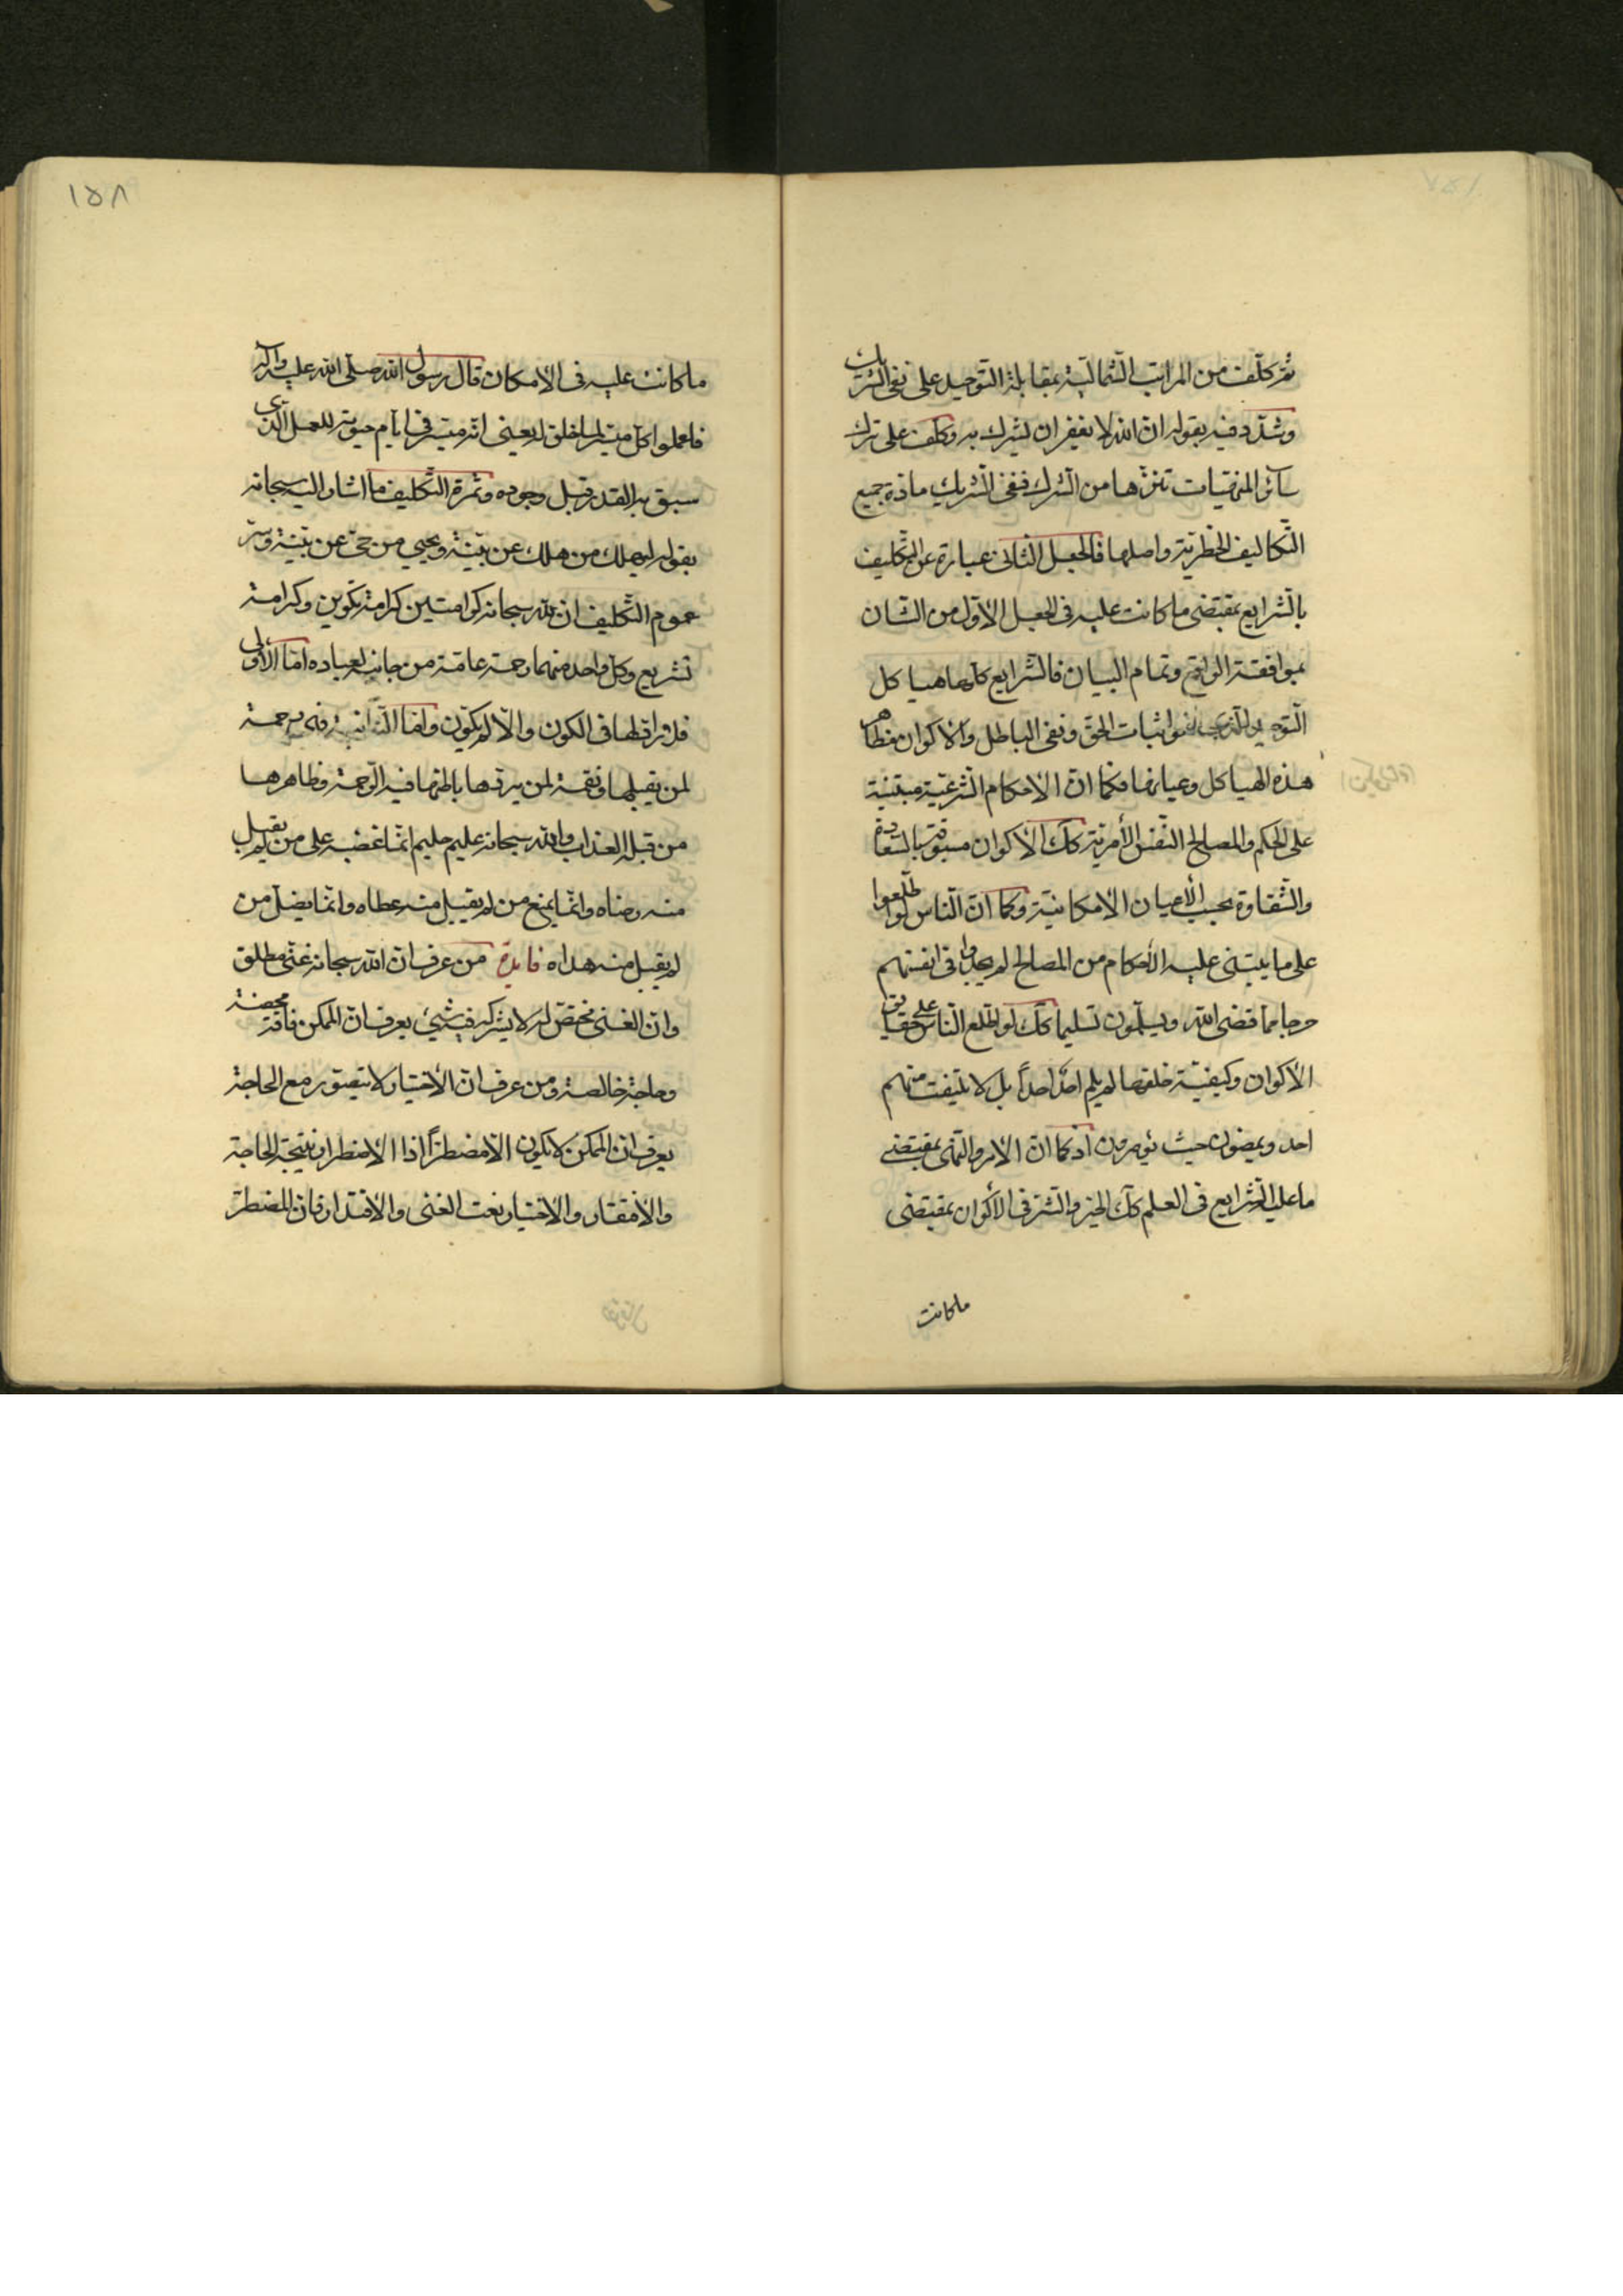 ثم كلّف من المراتب الشمالية بمقابلة التوحيد على نفى الشريك
وشدّد فيه بقوله ان الله لا يغفر ان يشرك به وكلف على ترك
سائر المنهيات تنزها من الشرك فنفى الشريك مادة جميع
التكاليف الحظرية واصلها فالجعل الثانى عبارة عن التكليف
بالشرايع بمقتضى ما كانت عليه فى الجعل الاول من الشان
بموافقة الواقع وتمام البيان فالشرايع كلها هياكل
التوحيد اثبات الحق ونفى الباطل والاكوان مظاهر
هذه الهياكل فكما ان الاحكام الشرعية مبتنية
على الحكم والمصالح النفس الأمرية كك الاكوان مسبوقة بالسعادة
والشقاوة بحسب الأعيان الامكانية وكما ان الناس لو اطلعوا
على ما يبتنى عليه الأحكام من المصالح لم يجدوا فى انفسهم
حرجا مما قضى الله ويسلمون تسليما كك لو اطلع الناس على حقايق
الاكوان وكيفية خلقها لم يلم احد احداً بل لا يلتفت منهم
احد ويمضون حيث يؤمرون اذ كما ان الامر والنهى بمقتضى
ما عليه الشرايع فى العلم كك الخير والشر فى الاكوان بمقتضى
ما كانت
١٥٨
ما كانت عليه فى الامكان قال رسول الله صلى الله عليه وآله
فاعملوا كل ميسر لما خلق له يعنى انه ميسر فى ايام حيوته للعمل الذى
سبق به القدر قبل وجوده وثمرة التكليف ما اشار اليه سبحانه
بقوله ليهلك من هلك عن بيّنة ويحيى من حىّ عن بيّنة وسرّ
عموم التكليف ان لله سبحانه كرامتين كرامة تكوين وكرامة
تشريع وكل واحد منهما رحمة عامة من جانبه لعباده امّا الاولى
فلا رادّ لها فى الكون والا لم يكوّن وامّا الثانية فهى رحمة
لمن يقبلها ونقمة لمن يردّها باطنها فيه الرحمة وظاهرها
من قبله العذاب والله سبحانه عليم حليم انما غضبه على من لم يقبل
منه رضاه وانما يمنع من لم يقبل منه عطاه وانما يضل من
لم يقبل منه هداه فايدة من عرف ان الله سبحانه غنى مطلق
وان الغنى مختص له لا يشركه فيه شىء يعرف ان الممكن فاقة محضة
وحاجة خالصة ومن عرف ان الاختيار لا يتصور مع الحاجة
يعرف ان الممكن لا يكون الا مضطرّاً اذ الاضطرار نتيجة الحاجة
والافتقار والاختيار نعت الغنى والاقتدار فان المضطرّ